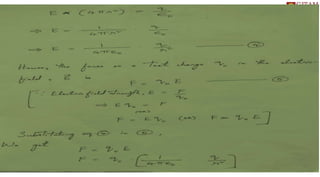 GITAM
E × (4πr²) = q/ε₀
⇒ E = 1/4πr² q/ε₀
⇒ E = 1/4πε₀ q/r² ——— ⓐ
Hence, the force on a test charge q₀ in the electric
field, E is
F = q₀ E ——— ⓑ
[∵ Electric field strength, E = F/q₀
⇒ E q₀ = F
F = E q₀ (or) F = q₀ E]
Substituting eq ⓐ in ⓑ,
We get F = q₀ E
F = q₀ [1/4πε₀ q/r²]